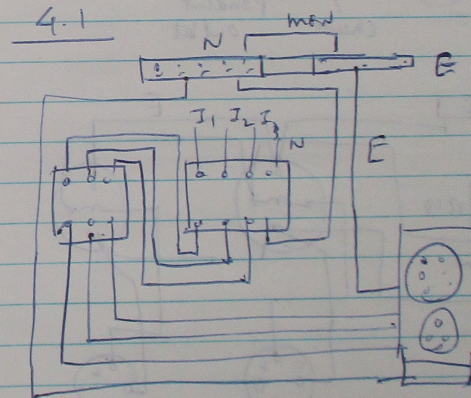 4.1
N MEN
E
I1 I2 I3 N
E